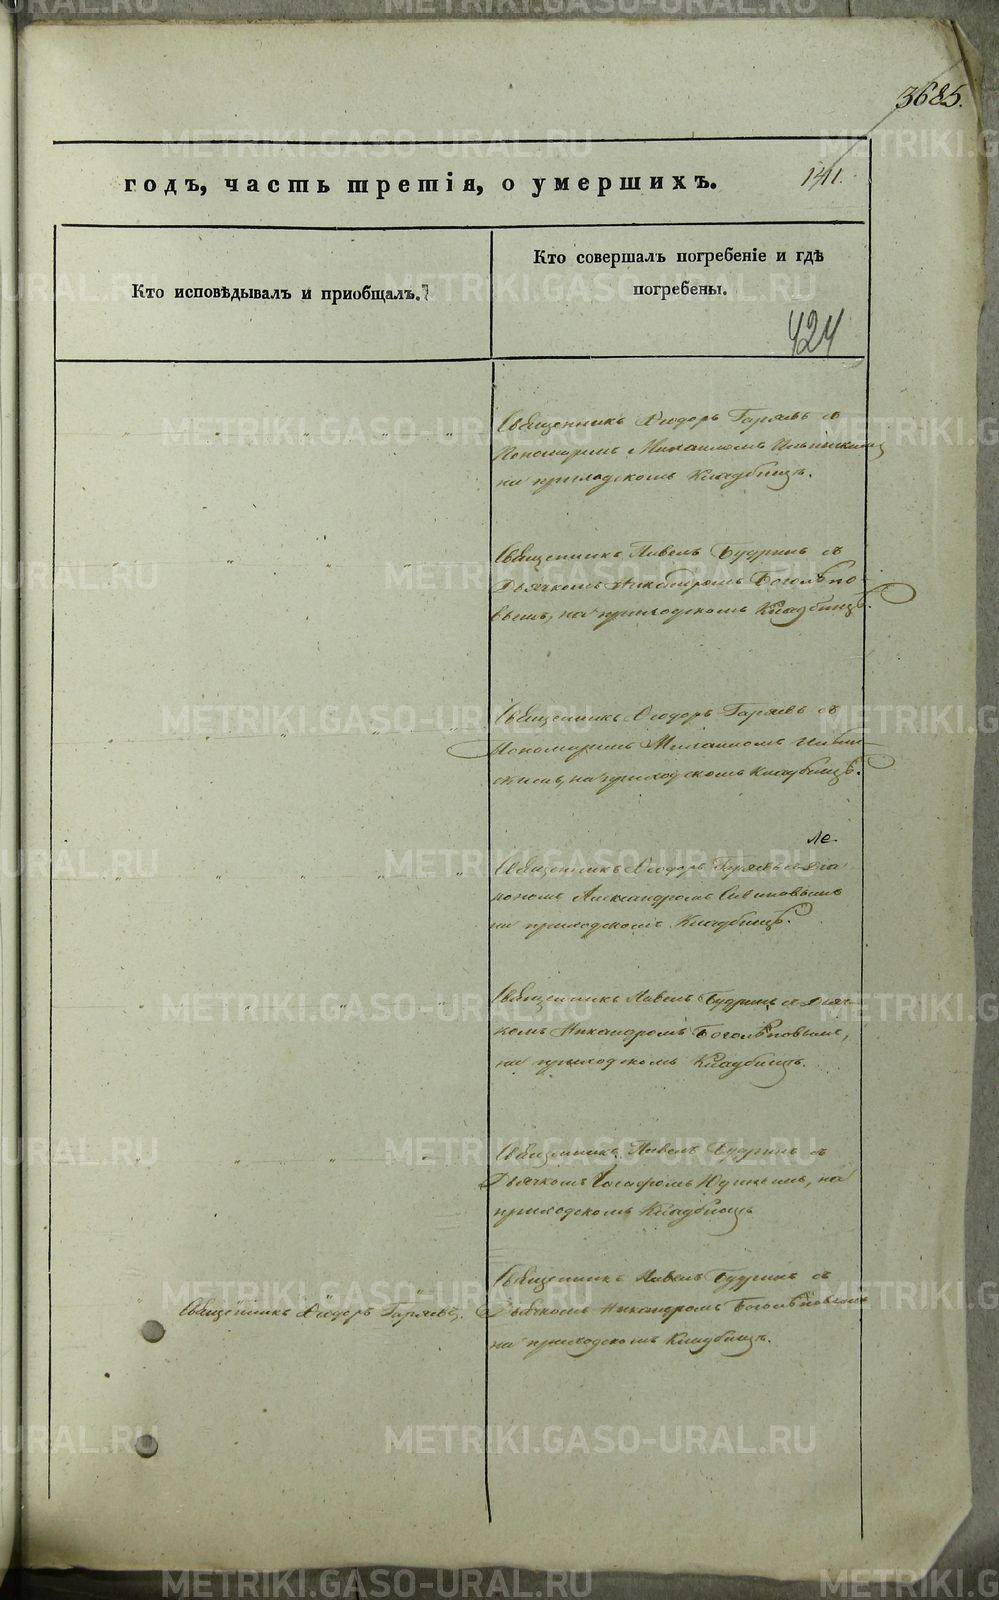 3685.
141.
годъ, часть третія, о умершихъ.
Кто исповѣдывалъ и приобщалъ.
Кто совершалъ погребеніе и гдѣ
погребены.
424
Священникъ Ѳеодоръ Гаряевъ съ
Пономаремъ Михаиломъ
на приходскомъ Кладбищѣ.
Священникъ Павелъ Будринъ съ
Дьячкомъ Никандромъ Боголѣпо-
вымъ, на приходскомъ Кладбищѣ.
Священникъ Ѳеодоръ Гаряевъ съ
Пономаремъ Михаиломъ
на приходскомъ Кладбищѣ.
Священникъ Ѳеодоръ Гаряевъ съ Діа
кономъ Александромъ
на приходскомъ Кладбищѣ.
Священникъ Павелъ Будринъ съ Дьяч-
комъ Никандромъ Боголѣповымъ,
на приходскомъ Кладбищѣ.
Священникъ Павелъ Будринъ съ
Дьячкомъ на
приходскомъ Кладбищѣ
Священникъ Ѳеодоръ Гаряевъ.
Священникъ Павелъ Будринъ съ
Дьячкомъ Никандромъ Боголѣповымъ
на приходскомъ Кладбищѣ.
METRIKI.GASO-URAL.RU